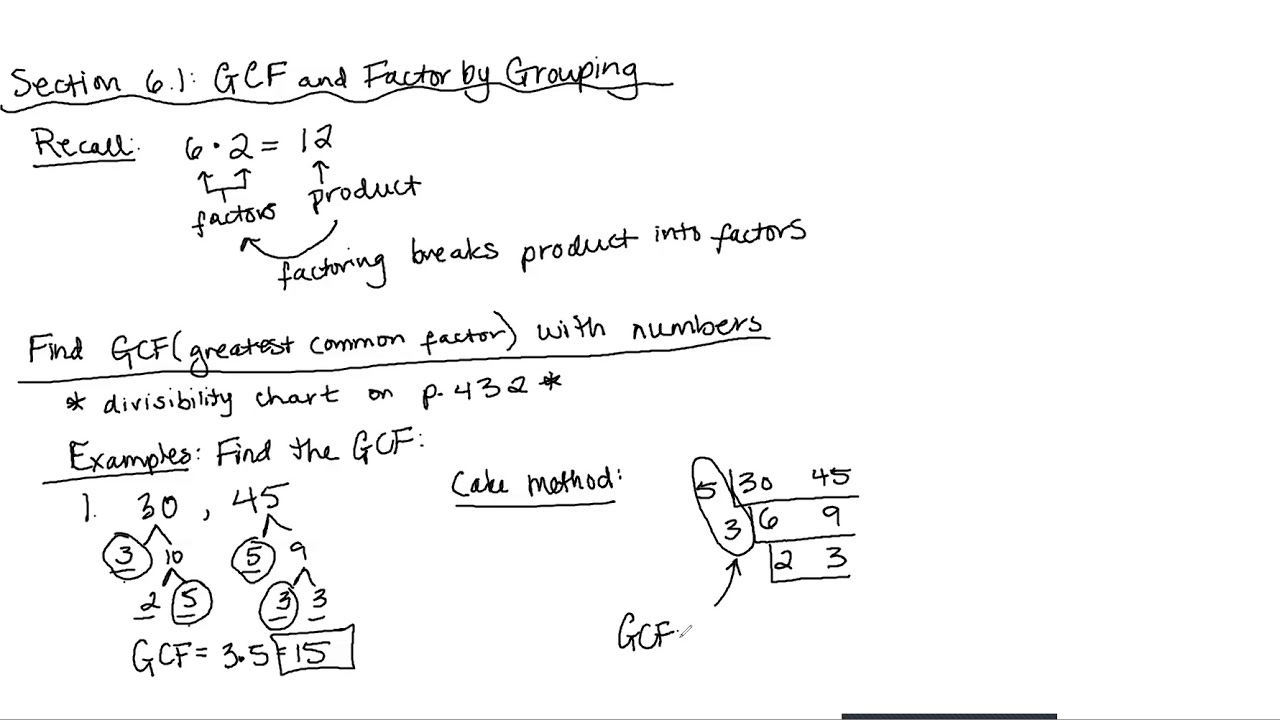 Section 6.1: GCF and Factor by Grouping
Recall: 6 · 2 = 12
factors product
factoring breaks product into factors
Find GCF (greatest common factor) with numbers
* divisibility chart on p. 432 *
Examples: Find the GCF:
1. 30, 45
3 10 5 9
2 5 3 3
GCF = 3·5 = 15
Cake method:
5 30 45
3 6 9
2 3
GCF